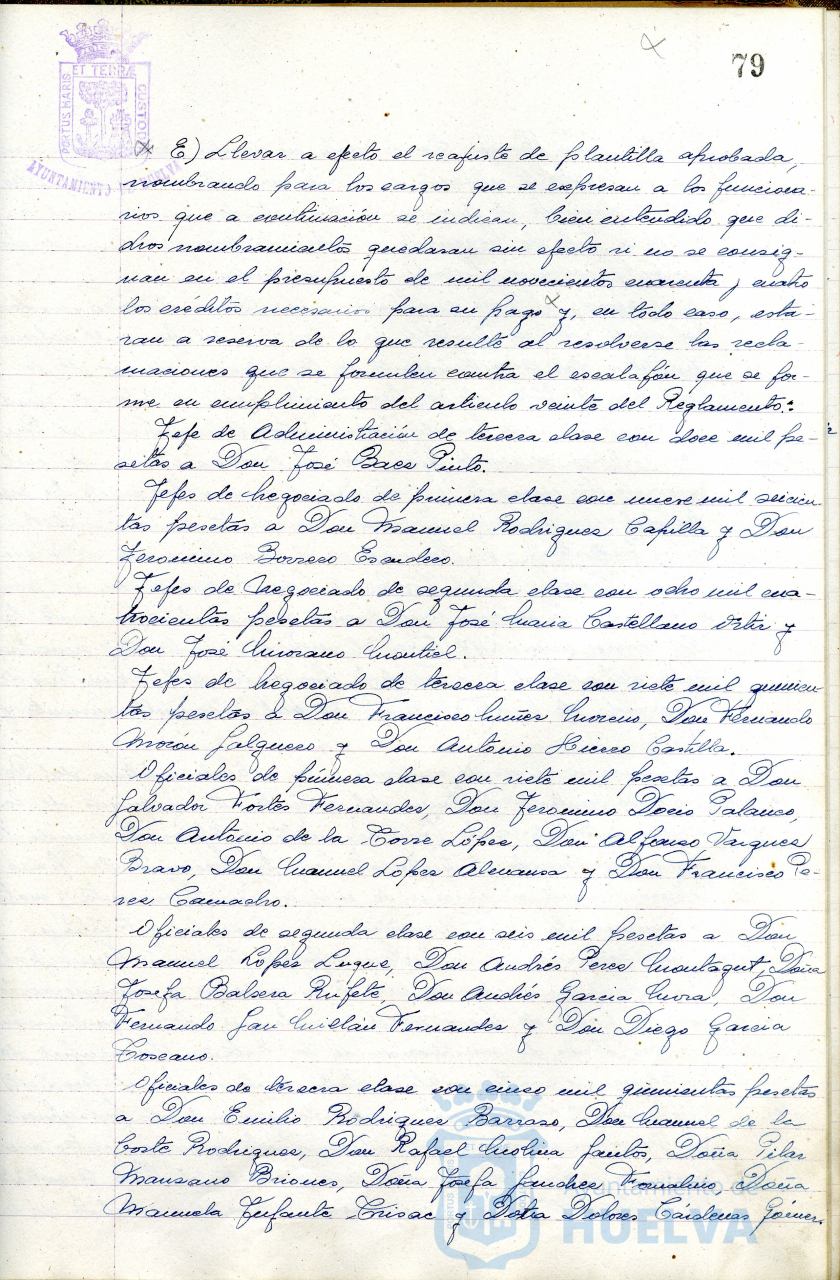 79
ET TERRÆ
PORTUS MARIS
CUSTODI
AYUNTAMIENTO HUELVA
E) Llevar a efecto el reajuste de plantilla aprobada,
nombrando para los cargos que se expresan a los funciona-
rios que a continuación se indican, bien entendido que di-
chos nombramientos quedaran sin efecto si no se consig-
nan en el presupuesto de mil novecientos cuarenta y cuatro
los créditos necesarios para su pago y, en todo caso, esta-
ran a reserva de lo que resulte al resolverse las recla-
maciones que se formulen contra el escalafón que se for-
me en cumplimiento del articulo veinte del Reglamento.:
Jefe de Administración de tercera clase con doce mil pe-
setas a Don José Baes Pinto.
Jefes de Negociado de primera clase con nueve mil seiscien-
tas pesetas a Don Manuel Rodrigues Capilla y Don
Jeronimo Borrero Escudero.
Jefes de Negociado de segunda clase con ocho mil cua-
trocientas pesetas a Don José Maria Castellano y
Don José Moreno Montiel.
Jefes de Negociado de tercera clase con siete mil quinien-
tas pesetas a Don Francisco Nuñes Moreno, Don Fernando
Morón Salguero y Don Antonio Hierro Castilla.
Oficiales de primera clase con siete mil pesetas a Don
Salvador Fortes Fernandes, Don Jeronimo Docio Palanco,
Don Antonio de la Torre Lópes, Don Alfonso Vasques
Bravo, Don Manuel Lopes Almansa y Don Francisco Pe-
res Camacho.
Oficiales de segunda clase con seis mil pesetas a Don
Manuel Lópes Luque, Don Andrés Peres Montagut, Doña
Josefa Balsera Rufete, Don Andrés Garcia Mora, Don
Fernando San Millán Fernandes y Don Diego Garcia
Toscano.
Oficiales de tercera clase con cinco mil quinientas pesetas
a Don Emilio Rodrigues Barraso, Don Manuel de la
Corte Rodrigues, Don Rafael Molina Santos, Doña Pilar
Mansano Briones, Doña Josefa Sanches Doña
Manuela Infante y Doña Dolores Cardenas Gómes.
Ayuntamiento de
HUELVA